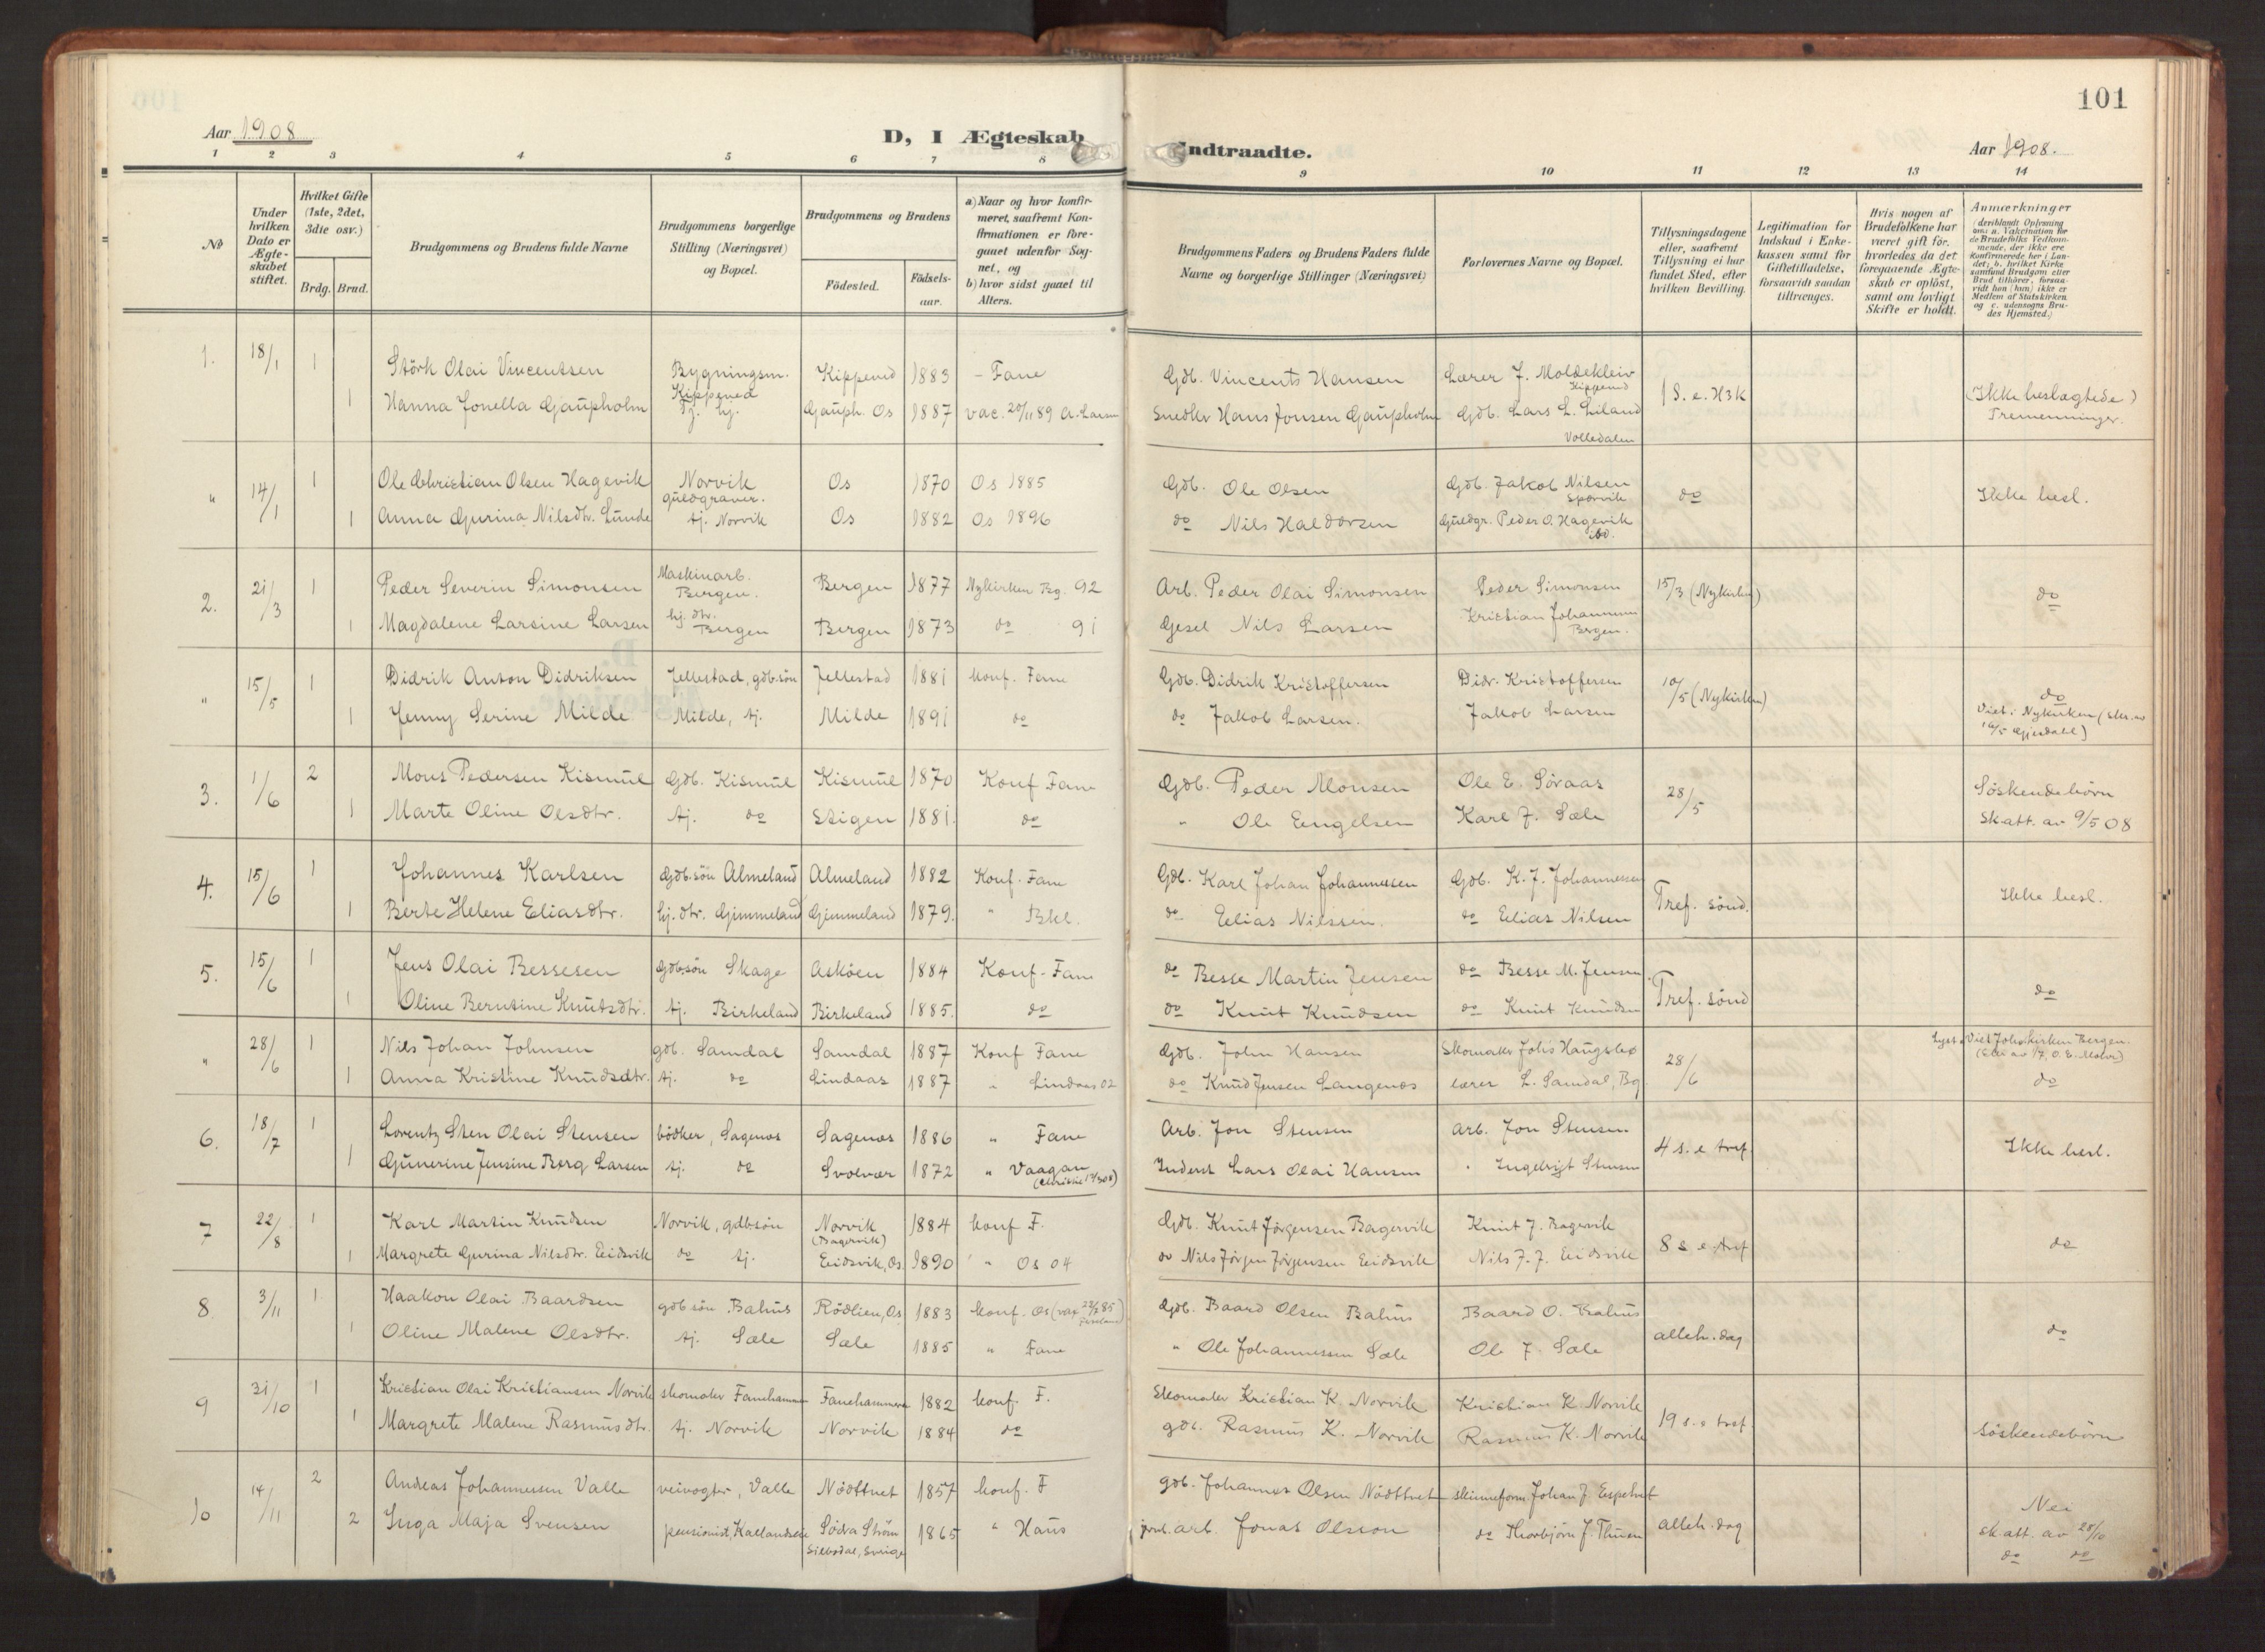 101
Aar 1908
D, I Ægteskab Indtraadte.
Aar 1908.
1 2 3 4 5 6 7 8 9 10 11 12 13 14
No
Under hvilken Dato er Ægteskabet stiftet.
Hvilket Gifte (1ste, 2det, 3die osv.)
Brdg. Brud.
Brudgommens og Brudens fulde Navne
Brudgommens borgerlige Stilling (Næringsvei) og Bopæl.
Brudgommens og Brudens
Födested.
Födsels-aar.
a) Naar og hvor konfirmeret, saafremt Konfirmationen er foregaaet udenfor Sognet, og
b) hvor sidst gaaet til Alters.
Brudgommens Faders og Brudens Faders fulde Navne og borgerlige Stillinger (Næringsvei)
Forlovernes Navne og Bopæl.
Tillysningsdagene eller, saafremt Tillysning ei har fundet Sted, efter hvilken Bevilling.
Legitimation for Indskud i Enkekassen samt for Giftetilladelse, forsaavidt saadan tiltrænges.
Hvis nogen af Brudefolkene har været gift för, hvorledes da det foregaaende Ægteskab er oplöst, samt om lovligt Skifte er holdt.
Anmærkninger
(deriblandt Oplysning om: a. Vakcination for de Brudefolks Vedkommende, der ikke ere konfirmerede her i Landet; b. hvilket Kirkesamfund Brudgom eller Brud tilhörer, forsaavidt han (hun) ikke er Medlem af Statskirken og c. udensogns Brudes Hjemsted.)
1. 18/1 1 Störk Olai Vincentsen Bygningsm. Kippeved Kippeved 1883 - Fane Gdb. Vincents Hansen Lærer J. Moldekleiv Kippeved 1 S. e. H3K (Ikke beslægtede)
1 Hanna Jonella Gaupholm Tj. hj. Gauph. Os 1887 vac. 20/11 89 A. Larsen Snedker Hans Jonsen Gaupholm Gdb. Lars L. Liland Volledalen Tremenninger.
" 14/1 1 Ole Christian Olsen Hagevik Norvik guldgraver. Os 1870 Os 1885 Gdb. Ole Olsen Gdb. Jakob Nilsen Sporvik do Ikke besl.
1 Anna Gurina Nilsdtr. Lunde tj. Norvik Os 1882 Os 1896 do Nils Haldorsen Guldgr. Peder O. Hagevik ibd.
2. 21/3 1 Peder Severin Simonsen Maskinarb. Bergen. Bergen 1877 Nykirken Bg. 92 Arb. Peder Olai Simonsen Peder Simonsen 15/3 (Nykirken) do
1 Magdalene Larsine Larsen hj. dtr. Bergen Bergen 1873 do 91 Gesel Nils Larsen Kristian Johannesen Bergen.
" 15/5 1 Didrik Anton Didriksen Jellestad, gdb.sön Jellestad 1881 konf. Fane Gdb. Didrik Kristoffersen Didr. Kristoffersen 10/5 (Nykirken) do
1 Jenny Serine Milde Milde, tj. Milde 1891 do do Jakob Larsen. Jakob Larsen Viet i Nykirken
3. 1/6 2 Mons Pedersen Kismul Gdb. Kismul Kismul 1870 Konf Fane Gdb. Peder Monsen Ole E. Söraas 28/5 Söskendebörn
1 Marte Oline Olsdtr. tj. do Stigen 1881. do " Ole Engelsen Karl J. Sæle Skatt. av 9/5 08
4. 15/6 1 Johannes Karlsen Gdb.sön Almeland Almeland 1882 Konf. Fane Gdb. Karl Johan Johannessen Gdb. K. J. Johannessen Tref. sönd. Ikke besl.
1 Berte Helene Eliasdtr. hj. dtr. Gjimmeland Gjimmeland 1879. " Bkl. do Elias Nilssen. do Elias Nilsen
5. 15/6 1 Jens Olai Bessesen Gdbsön Skage Asköen 1884 Konf. Fane do Besse Martin Jensen do Besse M. Jensen Tref. sönd do
1 Oline Berntine Knutsdtr. tj. Birkeland Birkeland 1885. do do Knut Knudsen do Knut Knudsen
" 28/6 1 Nils Johan Johnsen gdb. Samdal Samdal 1887 Konf Fane Gdb. John Hansen Skomaker Johs Haugsbø 28/6 Lyst & Viet Johs.kirken Bergen.
1 Anna Kristine Knudsdtr. tj. do Lindaas 1887 " Lindaas 02 do Knud Jensen Langenæs lærer L. Samdal, Bg do
6. 18/7 1 Lorentz Sten Olai Stensen bödker, Sagenæs Sagenæs 1886 " Fane Arb. Jon Stensen Arb. Jon Stensen 4 s. e. tref. Ikke besl.
1 Gunerine Jensine Borg Larsen tj. do Svolvær 1872 " Vaagan Inderst Lars Olai Hansen " Ingebrigt Stensen
7 22/8 1 Karl Martin Knudsen Norvik, gdbsön Norvik (Bagervik) 1884 konf F. Gdb. Knut Jörgensen Bagervik Knut J. Bagervik 8 s. e. tref do
1 Margrete Gurina Nilsdtr. Eidsvik do tj. Eidsvik, Os. 1890 " Os 04 do Nils Jörgen Jörgensen Eidsvik Nils J. J. Eidsvik
8. 3/11 1 Haakon Olai Baardsen gdb sön Bahus Rödlien, Os 1883 konf. Os Gdb. Baard Olsen Bahus Baard O. Bahus alleh. dag do
1 Oline Malene Olsdtr. tj. Sæle Sæle 1885 " Fane " Ole Johannessen Sæle Ole J. Sæle
9 31/10 1 Kristian Olai Kristiansen Norvik skomaker Fanehammer Fanehammeren 1882 konf. F. Skomaker Kristian K. Norvik Kristian K. Norvik 19 s. e. tref. Söskendebörn
1 Margrete Malene Rasmusdtr. tj. Norvik Norvik 1884 do gdb. Rasmus K. Norvik Rasmus K. Norvik
10 14/11 2 Andreas Johannessen Valle veivogter, Valle Nödttvet 1857 konf. F gdb. Johannes Olsen Nödttvet skinneform. Johan J. Espetvet alleh. dag Nei
2 Inga Maja Svensen pensionist, Södra Ström Silbodal, Sverige 1865 " Haus arb. Jonas Olsson do Thorbjörn J. skatt. av 28/10
do do